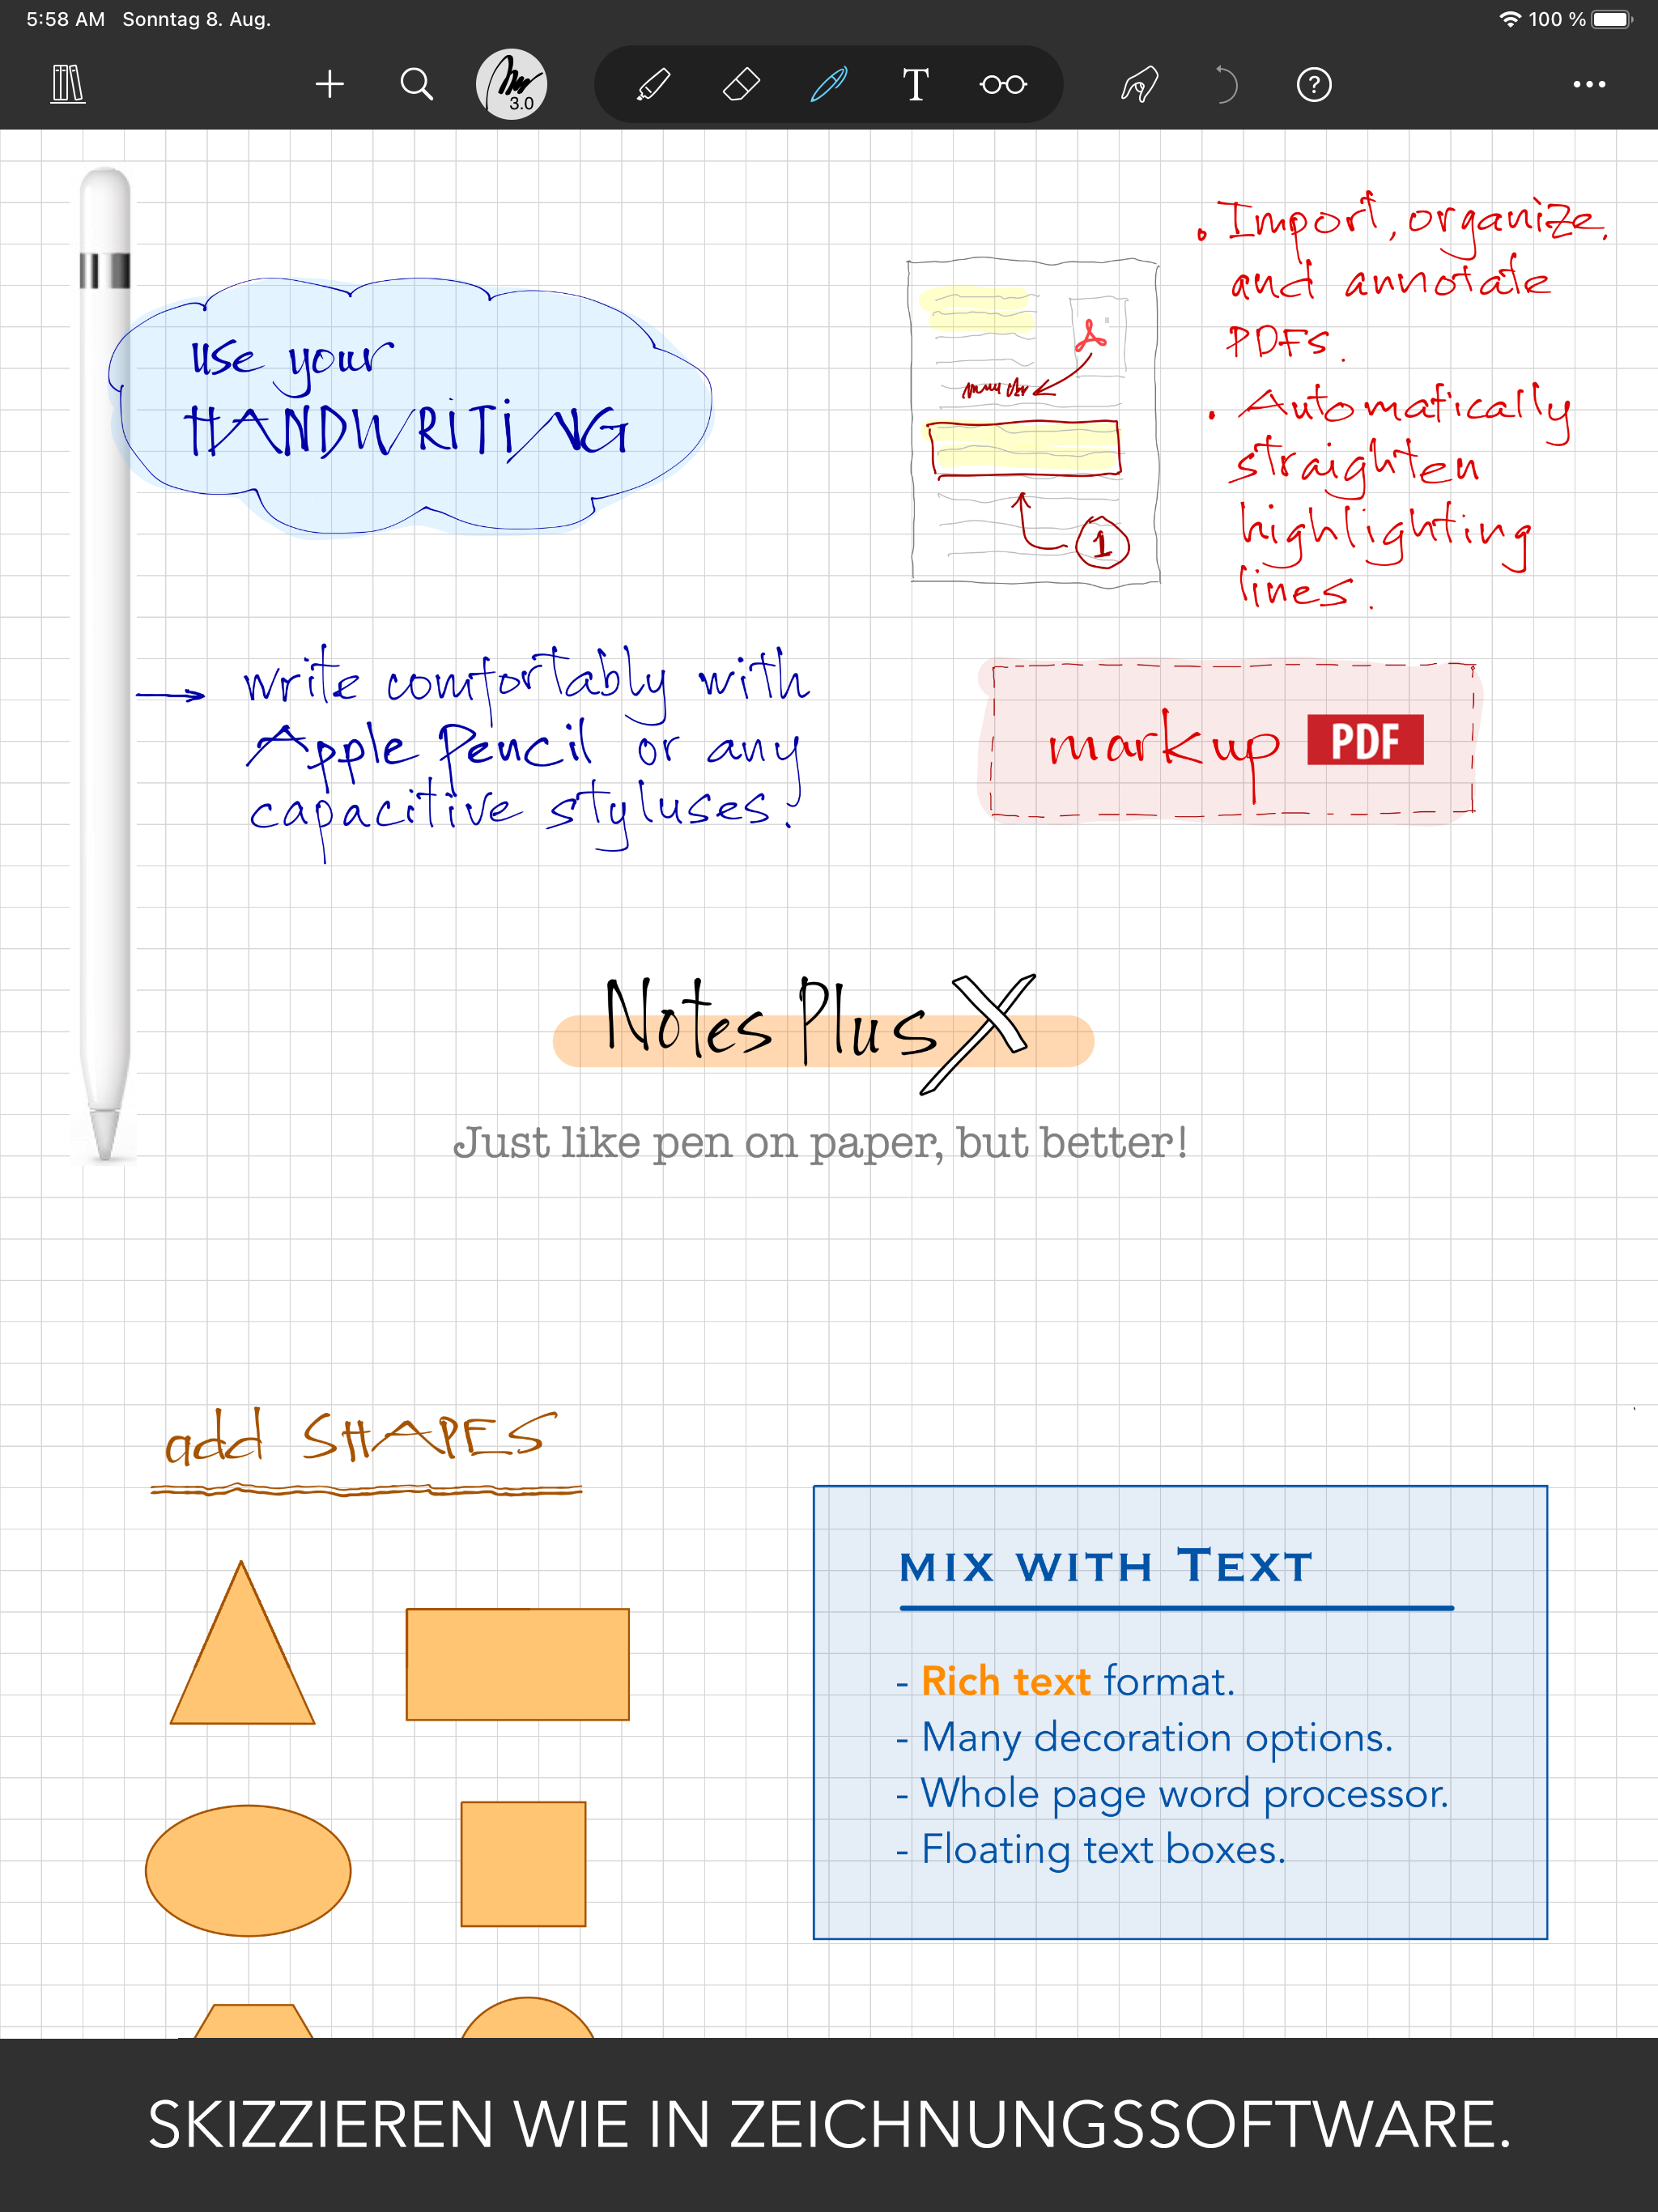 5:58 AM Sonntag 8. Aug.
100 %
3.0
T
?
use your
HANDWRITING
1
. Import, organize,
and annotate
PDFs.
. Automatically
straighten
highlighting
lines.
write comfortably with
Apple Pencil or any
capacitive styluses!
markup PDF
Notes Plus X
Just like pen on paper, but better!
add SHAPES
MIX WITH TEXT
- Rich text format.
- Many decoration options.
- Whole page word processor.
- Floating text boxes.
SKIZZIEREN WIE IN ZEICHNUNGSSOFTWARE.